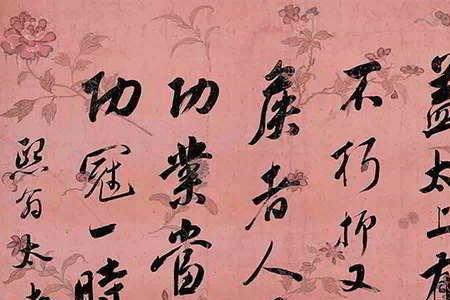 盖太上有
不朽抑又
矦者人
功業當
功冠一時
熙翁太